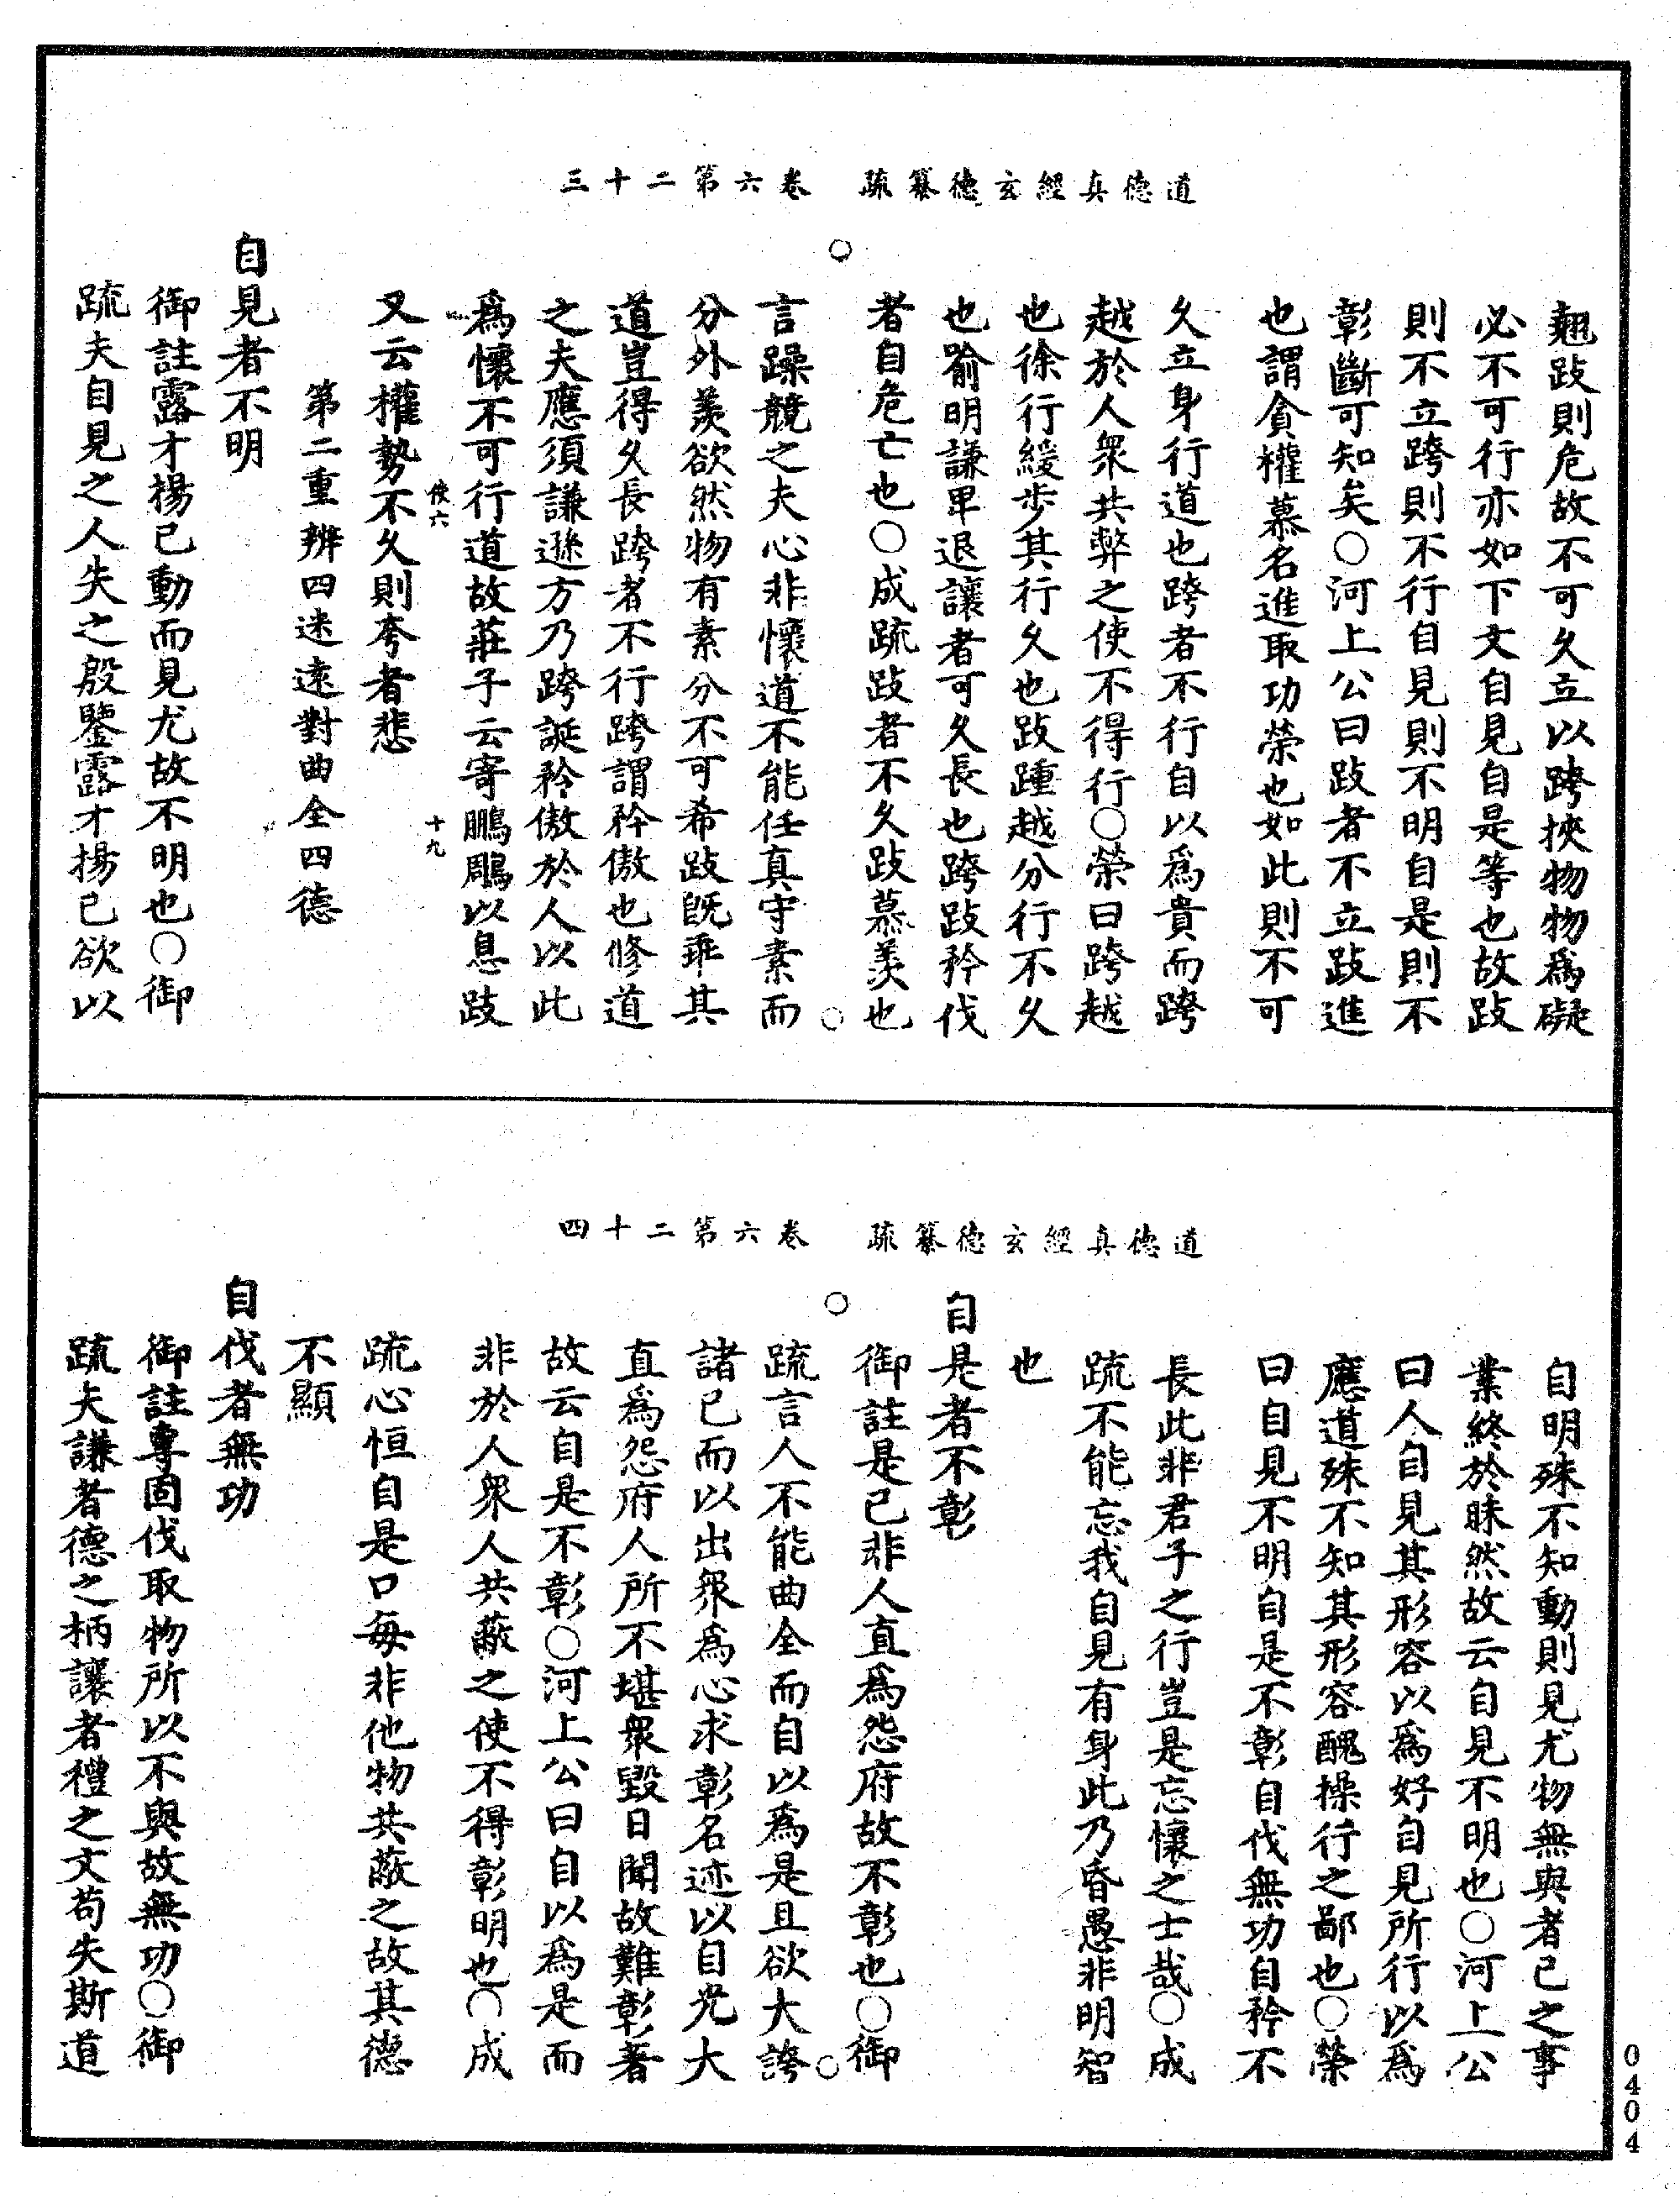 道德真經玄德纂疏　卷六第二十三
翹跂則危故不可久立以跨挾物物爲礙
必不可行亦如下文自見自是等也故跂
則不立跨則不行自見則不明自是則不
彰斷可知矣○河上公曰跂者不立跂進
也謂貪權慕名進取功榮也如此則不可
久立身行道也跨者不行自以爲貴而跨
越於人衆共弊之使不得行○榮曰跨越
也徐行緩步其行久也跂踵越分行不久
也喻明謙卑退讓者可久長也跨跂矜伐
者自危亡也○成疏跂者不久跂慕羨也
言躁競之夫心非懷道不能任真守素而
分外羨欲然物有素分不可希跂旣乖其
道豈得久長跨者不行跨謂矜傲也修道
之夫應須謙遜方乃跨誕矜傲於人以此
爲懷不可行道故莊子云寄鵬鷃以息跂
使六　十九
又云權勢不久則夸者悲
第二重辨四迷遠對曲全四德
自見者不明
御註露才揚己動而見尤故不明也○御
疏夫自見之人失之殷鑒露才揚己欲以
道德真經玄德纂疏　卷六第二十四
自明殊不知動則見尤物無與者己之事
業終於昧然故云自見不明也○河上公
曰人自見其形容以爲好自見所行以爲
應道殊不知其形容醜操行之鄙也○榮
曰自見不明自是不彰自伐無功自矜不
長此非君子之行豈是忘懷之士哉○成
疏不能忘我自見有身此乃昏愚非明智
也
自是者不彰
御註是己非人直爲怨府故不彰也○御
疏言人不能曲全而自以爲是且欲大誇
諸己而以出衆爲心求彰名迹以自光大
直爲怨府人所不堪衆毀日聞故難彰著
故云自是不彰○河上公曰自以爲是而
非於人衆人共蔽之使不得彰明也○成
疏心恒自是口每非他物共蔽之故其德
不顯
自伐者無功
御註專固伐取物所以不與故無功○御
疏夫謙者德之柄讓者禮之文苟失斯道
0404